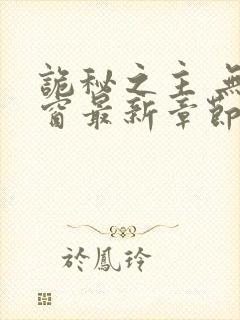 詭秘之主 無
窗最新章節
於鳳玲